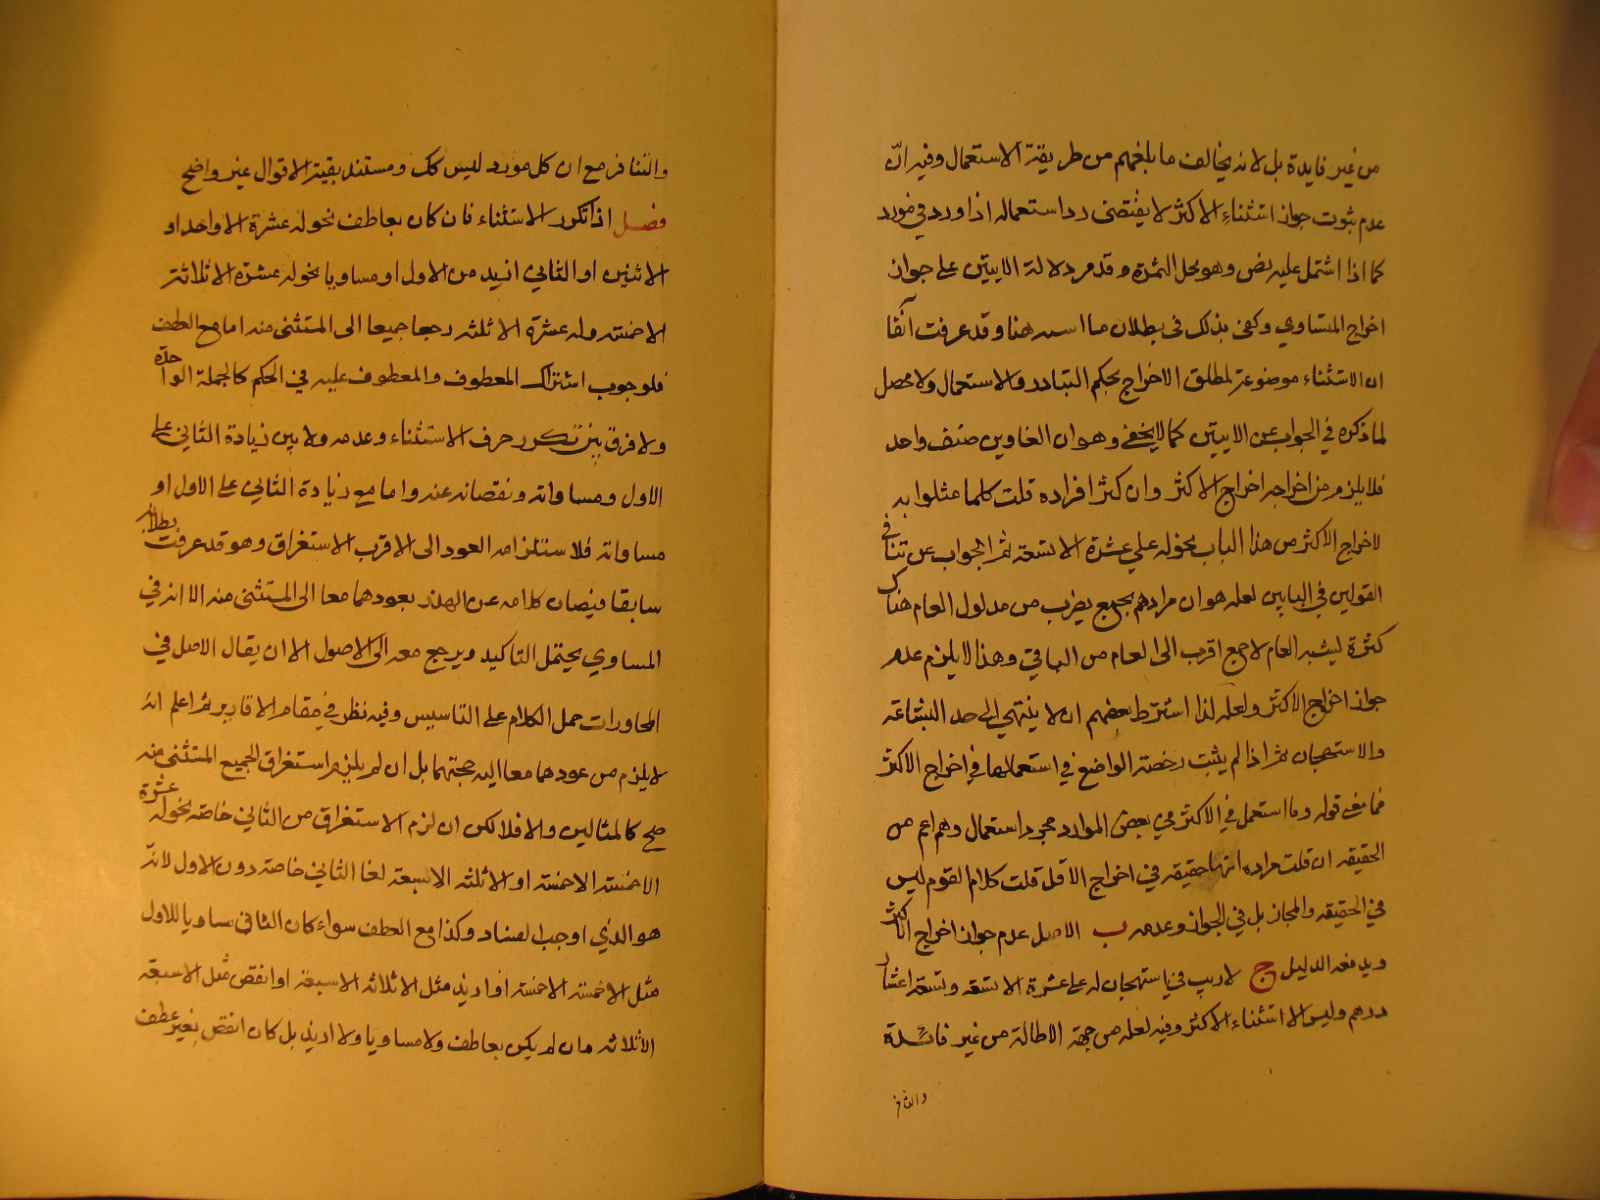 من غير فايدة بل لانه يخالف ما بلغهم من طريقة الاستعمال وفيه انّ
عدم ثبوت جواز استثناء الاكثر لا يقتضى رد استعماله اذا ورد في مورد
كما اذا اشتمل عليه نص وهو محل الثمرة وقد مر دلالة الايتين على جواز
اخراج المتساوي وكفى بذلك في بطلان ما اسسه هنا وقد عرفت آنفا
ان الاستثناء موضوعة لمطلق الاخراج بحكم التبادر والاستعمال ولا محصل
لما ذكره في الجواب عن الايتين كما لا يخفى وهو ان الغاوين صنف واحد
فلا يلزم من اخراجه اخراج الاكثر وان كثر افراده قلت كلما مثلوا به
لاخراج الاكثر من هذا الباب نحو له علي عشرة الا تسعة ثم الجواب عن تنافى
القولين في البابين لعله هو ان مرادهم بجمع يقرب من مدلول العام هناك
كثرة ليشبه العام لا جمع اقرب الى العام من الباقي وهذا لا يلزم عدم
جواز اخراج الاكثر ولعله لذا اشترط بعضهم ان لا ينتهي الى حد البشاعة
والاستهجان ثم اذا لم يثبت رخصة الواضع في استعمالها في اخراج الاكثر
فما معنى قوله وما استعمل في الاكثر في بعض الموارد مجرد استعمال وهم اعم من
الحقيقة ان قلت مراده انها حقيقة في اخراج الاقل قلت كلام القوم ليس
في الحقيقة والمجاز بل في الجواز وعدمه ب الاصل عدم جواز اخراج الاكثر
ويدفعه الدليل ج لا ريب في استهجان له علي عشرة الا تسعة وتسعة اعشار
درهم وليس الا استثناء الاكثر وفيه لعله من جهة الاطالة من غير فائدة
والتنافر
والتنافر مع ان كل مورد ليس كك ومستند بقية الاقوال غير واضح
فصل اذا تكرر الاستثناء فان كان بعاطف نحو له عشرة الا واحدا و
الا اثنين او الثاني ازيد من الاول او مساويا نحو له عشرة الا ثلاثة
الا خمسة وله عشرة الا ثلثه رجعا جميعا الى المستثنى منه اما مع العطف
فلوجوب اشتراك المعطوف والمعطوف عليه في الحكم كالجملة الواحدة
ولا فرق بين تكرر حرف الاستثناء وعدمه ولا بين زيادة الثاني على
الاول ومساواته ونقصانه عنه واما مع زيادة الثاني على الاول او
مساواته فلاستلزامه العود الى الاقرب الاستغراق وهو قد عرفت بطلانه
سابقا فيصان كلامه عن الهذر بعودهما معا الى المستثنى منه الا انه في
المساوي يحتمل التاكيد ويرجع معه الى الاصول الا ان يقال الاصل في
المحاورات حمل الكلام على التاسيس وفيه نظر في مقام الاقارير ثم اعلم انه
لا يلزم من عودهما معا اليه صحتهما بل ان لم يلزم استغراق الجميع المستثنى منه
صح كالمثالين والا فلا لكن ان لزم الاستغراق من الثاني خاصة نحو له عشرة
الا خمسة الا خمسة او الا ثلثه الا سبعة لغا الثاني خاصة دون الاول لانّه
هو الذي اوجب الفساد وكذا مع العطف سواء كان الثاني مساويا للاول
مثل الا خمسة الا خمسة او ازيد مثل الا ثلاثة الا سبعة او انقص مثل الا سبعة
الا ثلاثه وان لم يكن بعاطف ولا مساويا ولا ازيد بل كان انقص بغير عطف